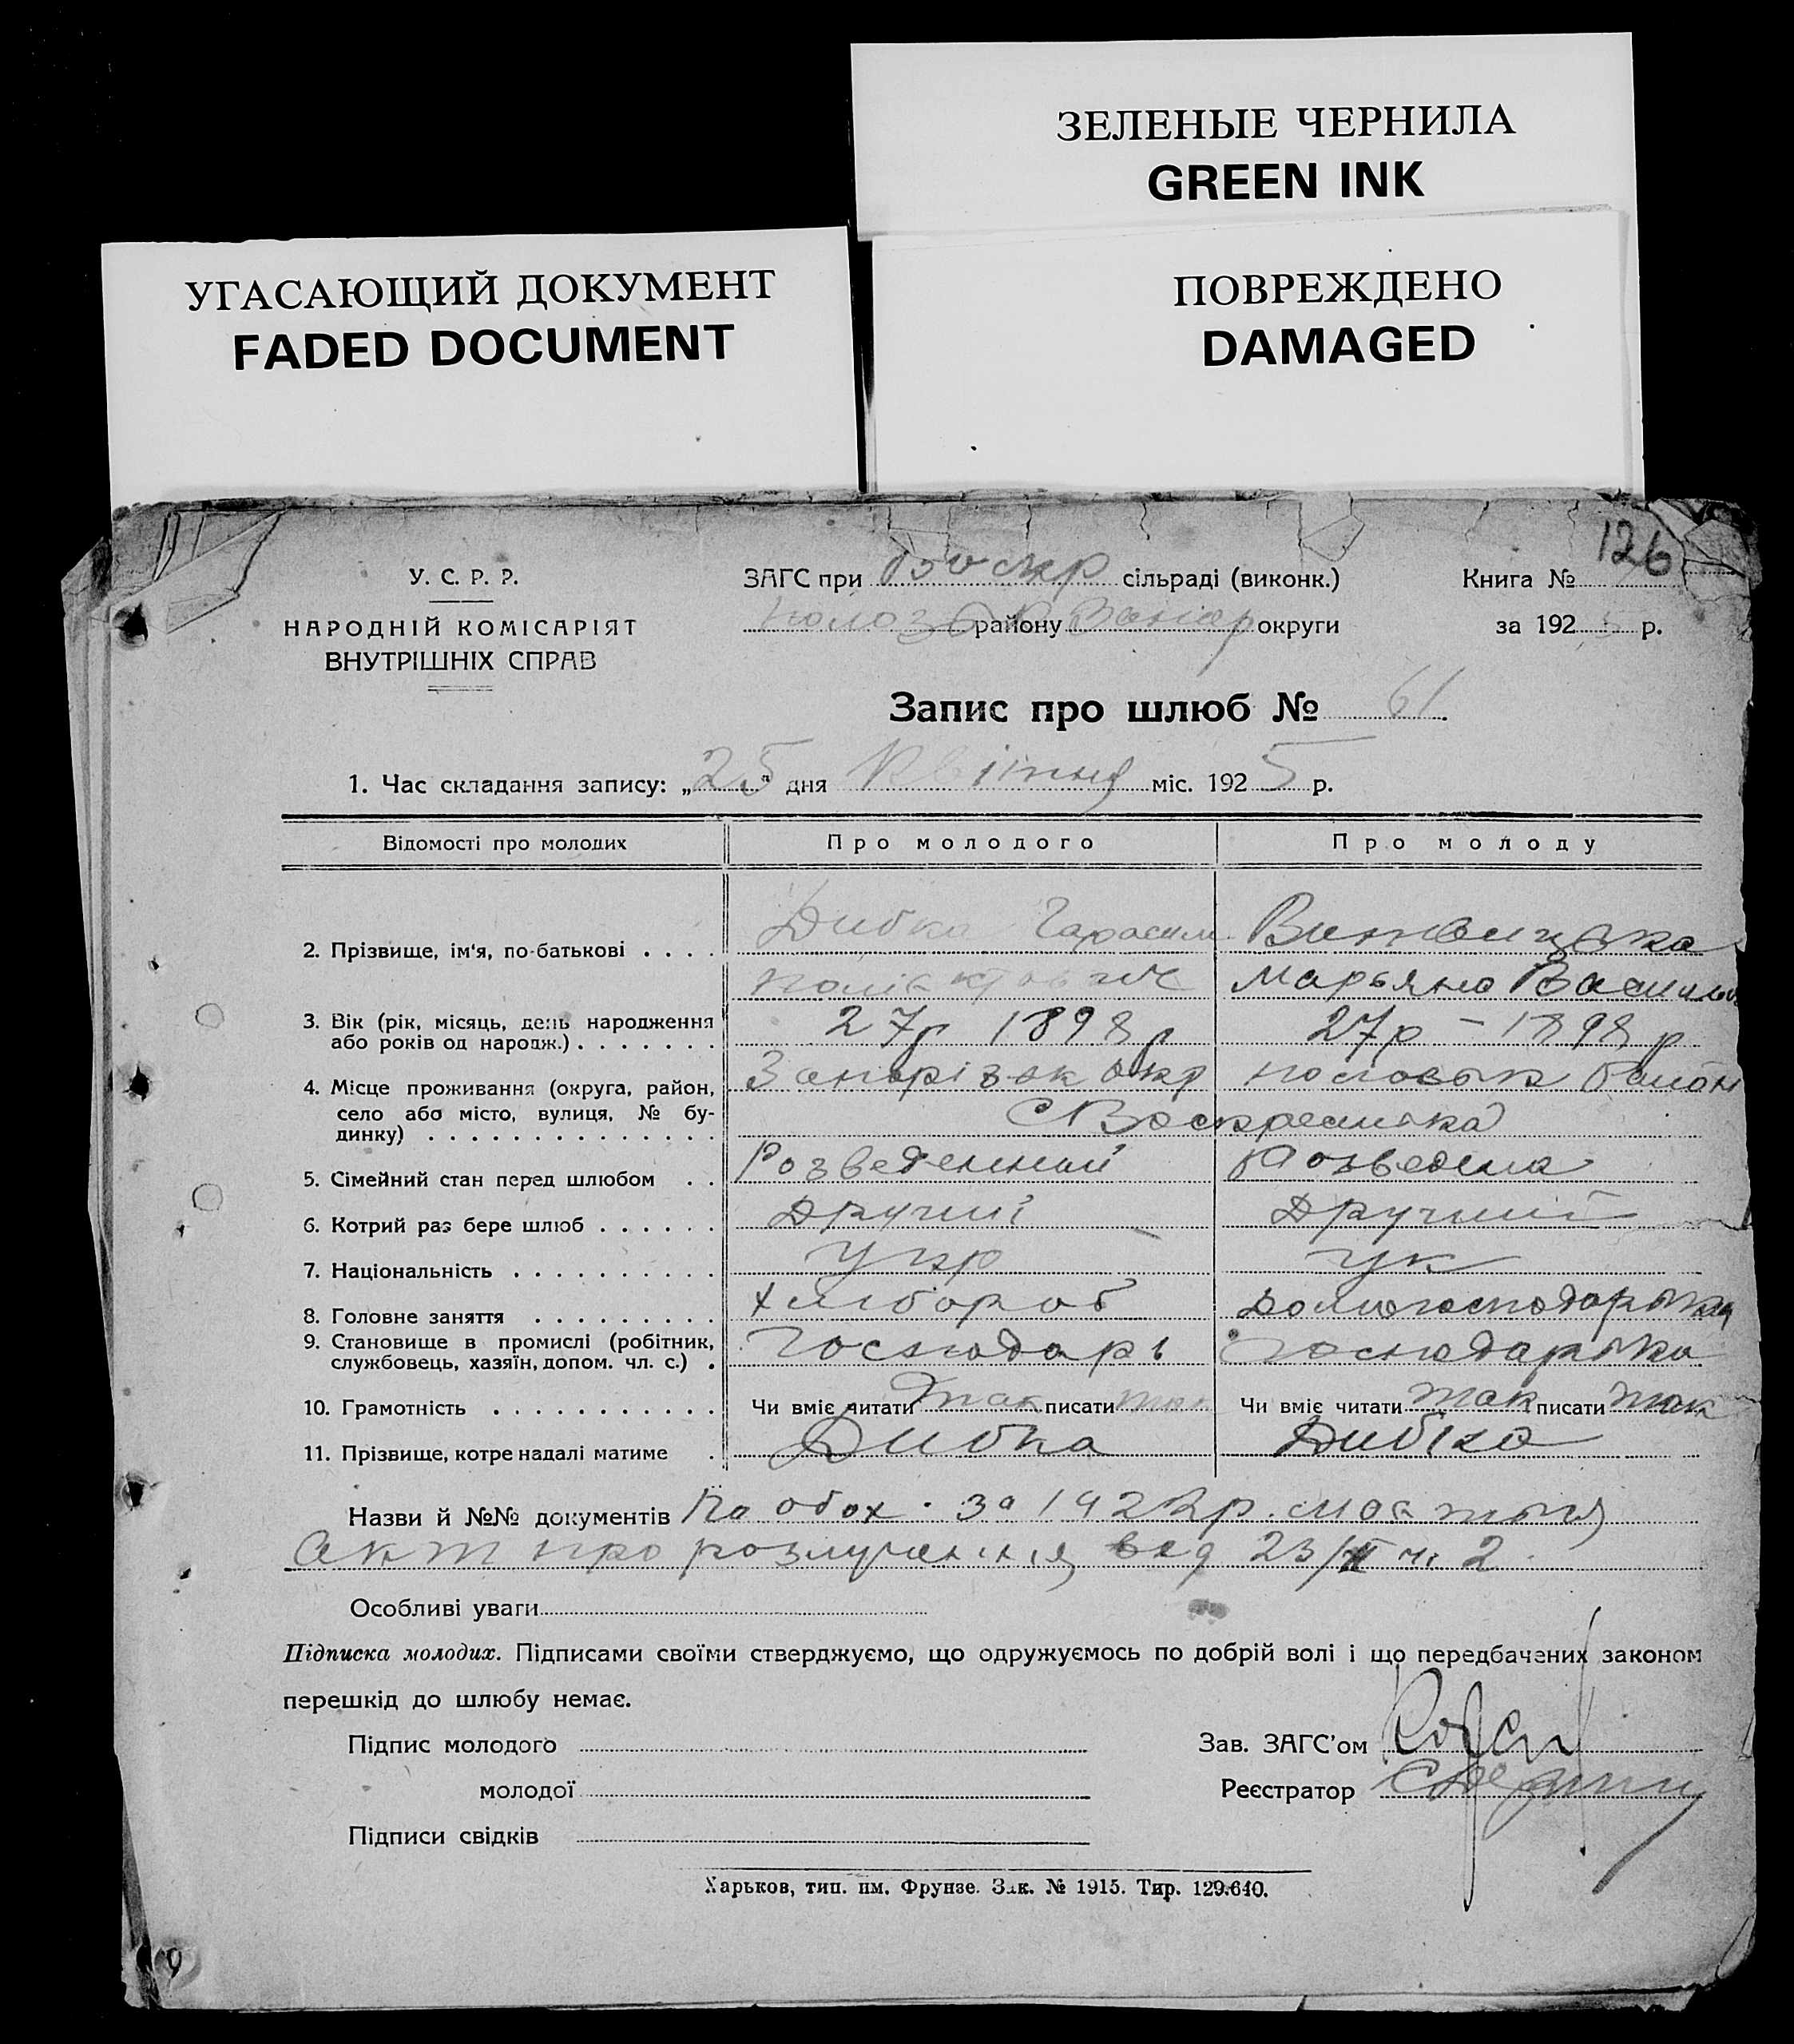 ЗЕЛЕНЫЕ ЧЕРНИЛА
GREEN INK
УГАСАЮЩИЙ ДОКУМЕНТ
FADED DOCUMENT
ПОВРЕЖДЕНО
DAMAGED
126
У. С. Р. Р.
НАРОДНІЙ КОМІСАРІЯТ
ВНУТРІШНІХ СПРАВ
ЗАГС при Воскр сільраді (виконк.)
району Запор округи
Книга №
за 1925 р.
Запис про шлюб № 61
1. Час складання запису: „25" дня Квітня міс. 1925 р.
Відомості про молодих Про молодого Про молоду
2. Прізвище, ім'я, по-батькові . . . . Дибка Гарасим
Марьяна
3. Вік (рік, місяць, день народження
або років од народж.) . . . . . . . 27р 1898р 27р – 1898р
4. Місце проживання (округа, район, Запорізьк окр район
село або місто, вулиця, № бу-
динку) . . . . . . . . . . . . . . С Воскресенка
5. Сімейний стан перед шлюбом . . Розведенний Розведена
6. Котрий раз бере шлюб . . . . . . Другий Другий
7. Національність . . . . . . . . . . Укр Ук
8. Головне заняття . . . . . . . . . Хлібороб
9. Становище в промислі (робітник,
службовець, хазяїн, допом. чл. с.) . Господарь Господарька
10. Грамотність . . . . . . . . . . . Чи вміє читати так писати так Чи вміє читати так писати так
11. Прізвище, котре надалі матиме . Дибка Дибка
Назви й №№ документів По обох за 1922р.
Акт про розлучення від 23/ ч. 2.
Особливі уваги
Підписка молодих. Підписами своїми стверджуємо, що одружуємось по добрій волі і що передбачених законом
перешкід до шлюбу немає.
Підпис молодого
Зав. ЗАГС'ом
молодої
Реєстратор
Підписи свідків
Харьков, тип. им. Фрунзе. Зак. № 1915. Тир. 129.640.
9